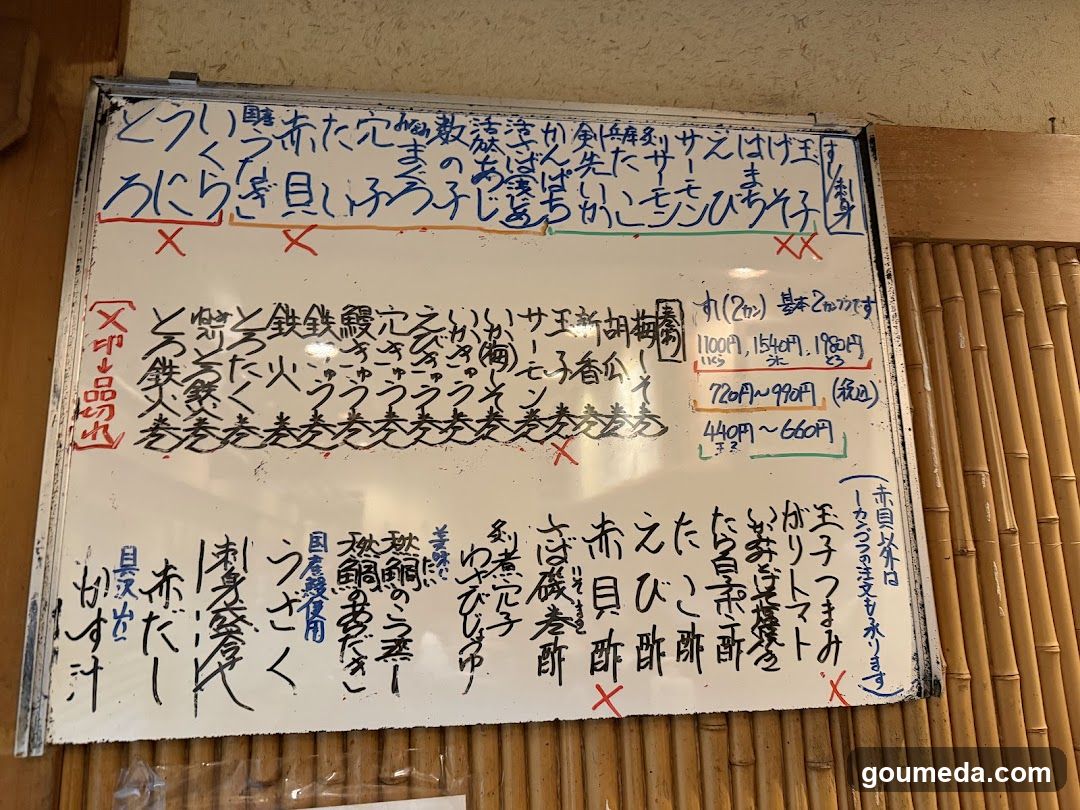 すし 刺身
玉子
げそ
はまち
えび
サーモン
炙りサーモン
兵庫 たこ
剣先いか
かんぱち
活〆さば
活〆あじ
数の子
まぐろ
穴子
たい
赤貝
国産 うなぎ
いくら
うに
とろ
すし(2カン) 基本2カンヅツです
1100円, 1540円, 1980円
いくら うに とろ
720円〜990円 (税込)
440円〜660円
巻物
梅しそ巻
胡瓜巻
新香巻
玉子巻
サーモン巻
いか(梅)しそ巻
いかきゅう巻
えびきゅう巻
穴きゅう巻
鰻きゅう巻
鉄きゅう巻
鉄火巻
とろたく巻
とろ鉄火巻
(×印→品切れ)
(赤貝以外は
一カンヅツの注文も承ります)
玉子つまみ
がりトマト
たら白子ポン酢
たこ酢
えび酢
赤貝酢
さば磯巻酢
いそまき
炙り煮穴子
わさびじょうゆ
美味しい
天然鯛のうま煮
天然鯛のあらだき
国産鰻使用
うざく
刺身盛合せ
赤だし
具沢山
かす汁
goumeda.com